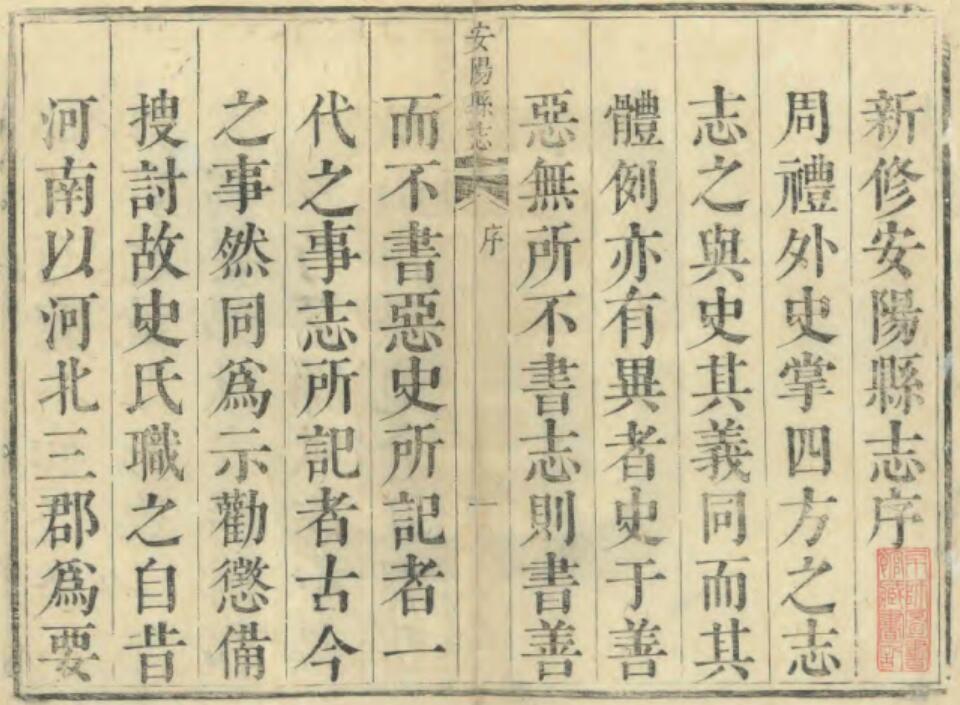 新修安陽縣志序
周禮外史掌四方之志
志之與史其義同而其
體例亦有異者史于善
惡無所不書志則書善
安陽縣志
序
一
而不書惡史所記者一
代之事志所記者古今
之事然同爲示勸懲備
搜討故史氏職之自昔
河南以河北三郡爲要